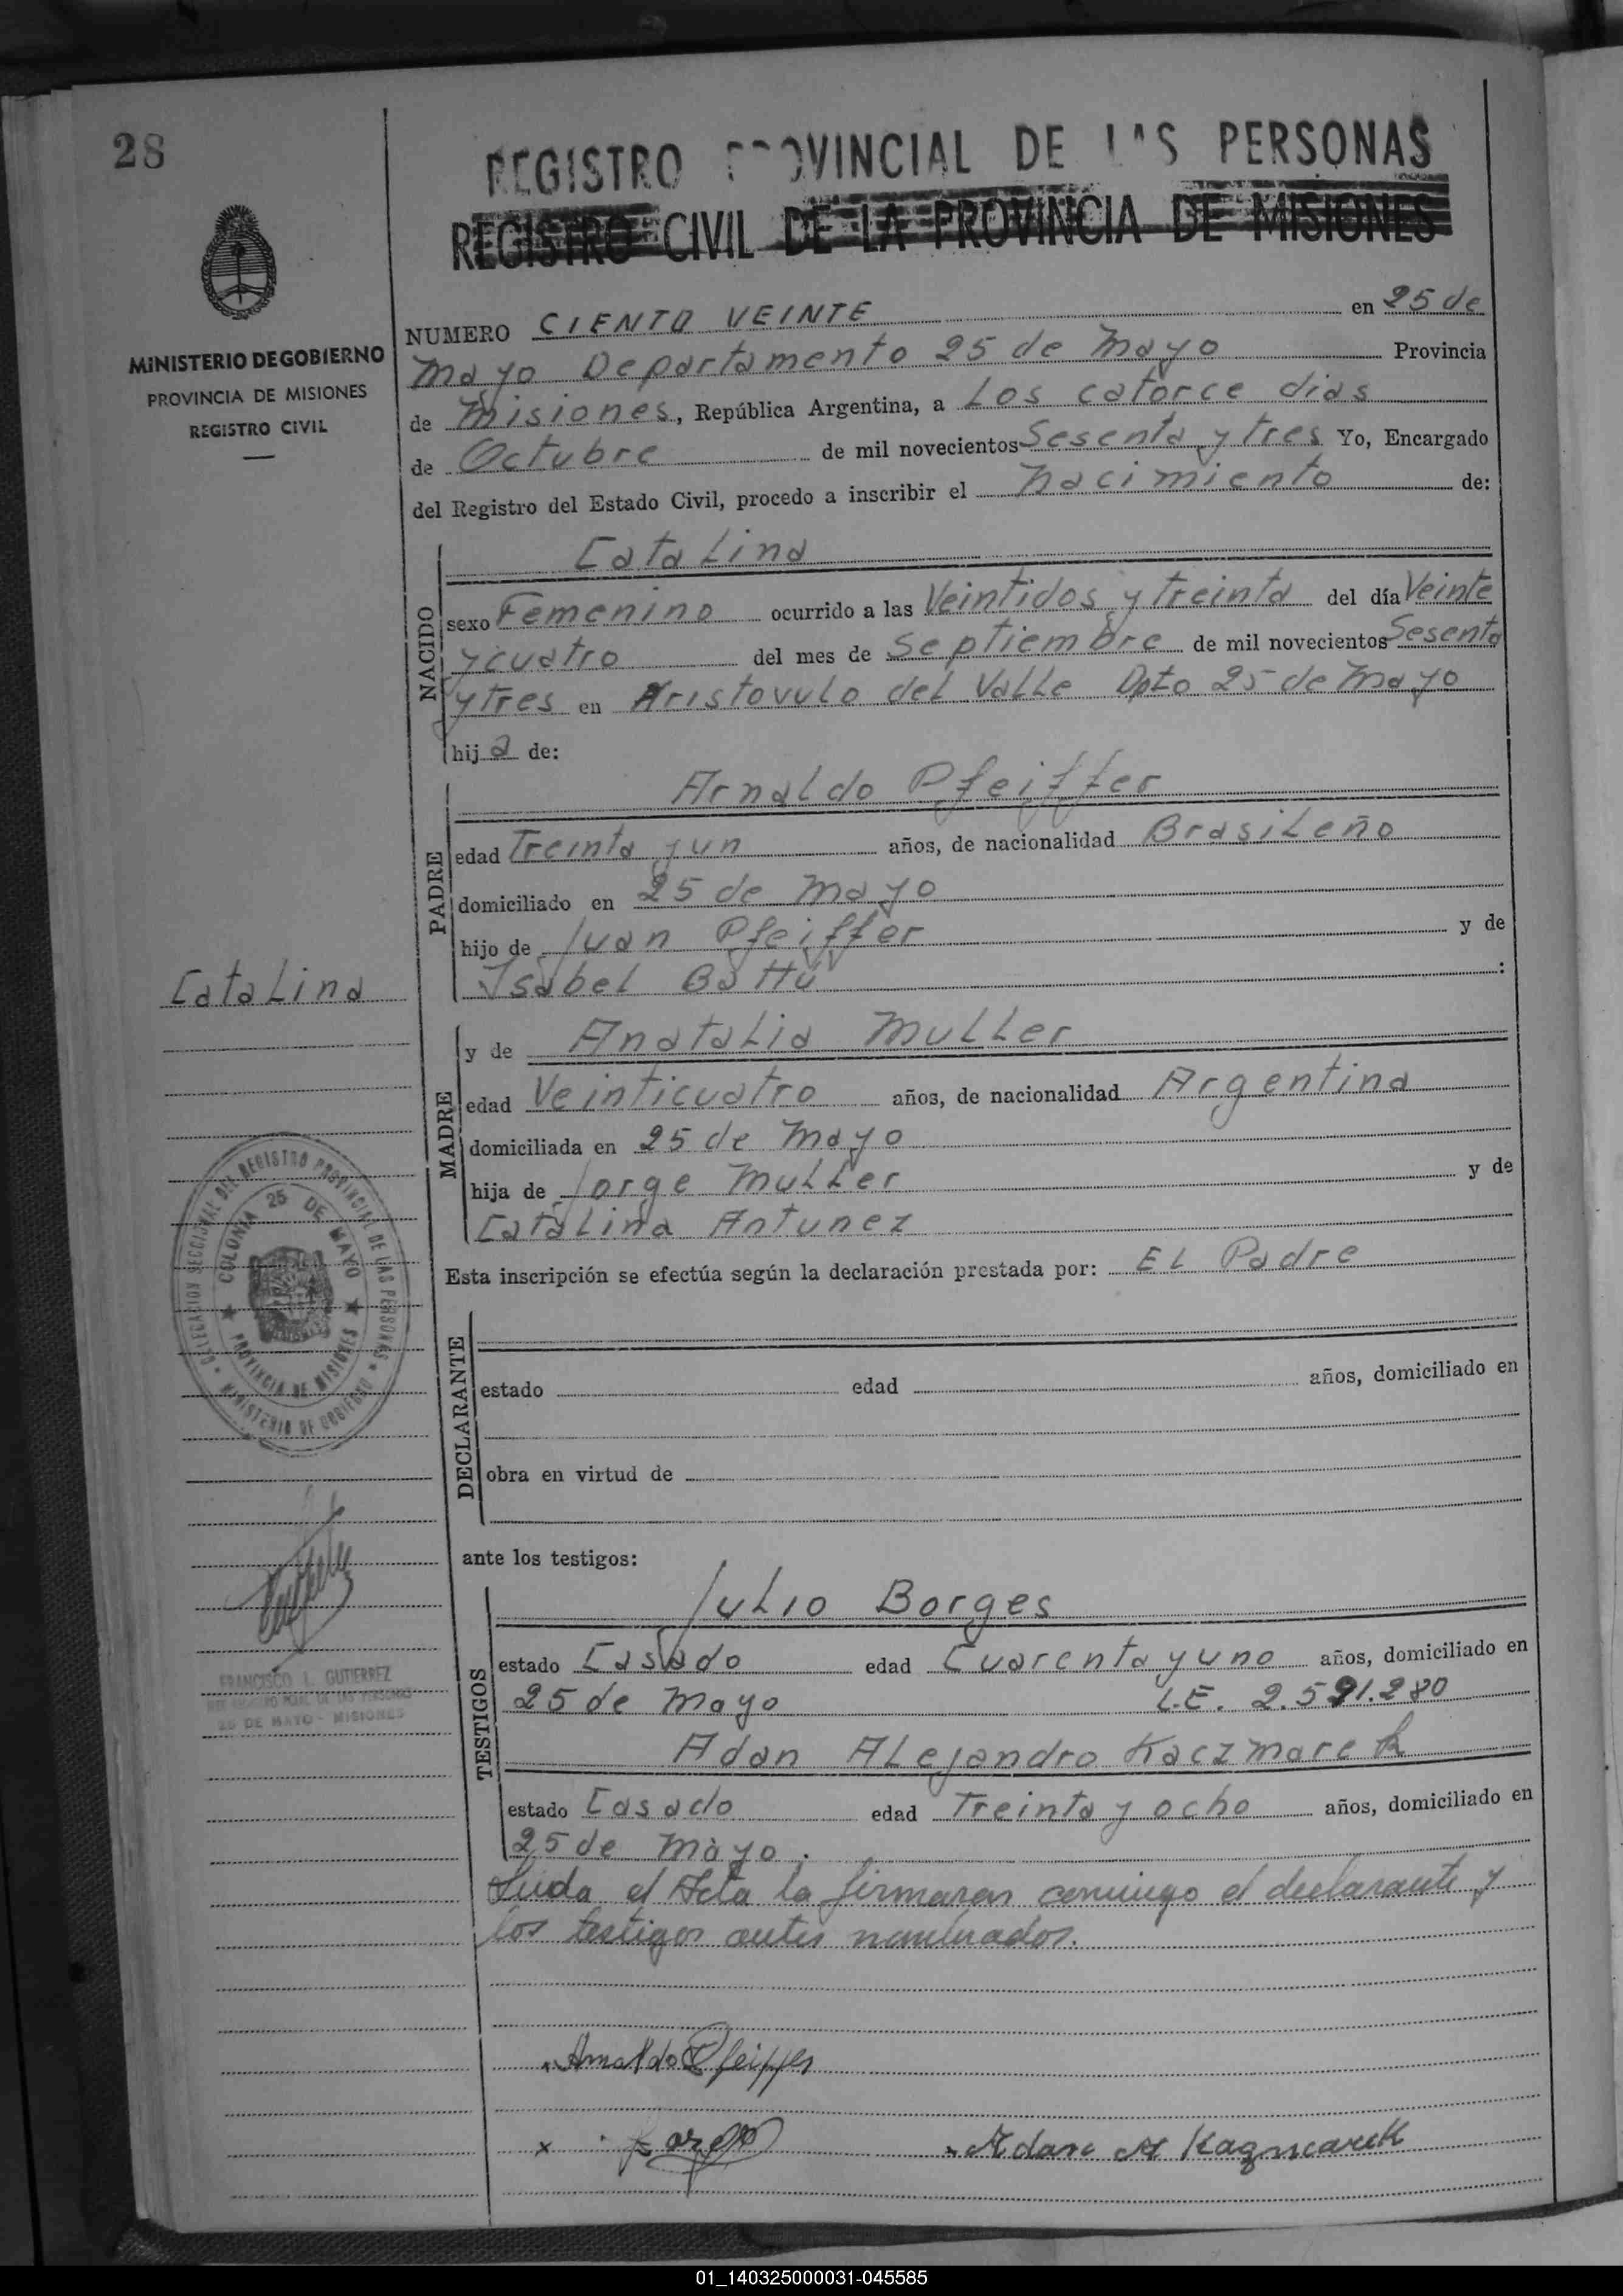 28
REGISTRO PROVINCIAL DE LAS PERSONAS
REGISTRO CIVIL DE LA PROVINCIA DE MISIONES
MINISTERIO DE GOBIERNO
PROVINCIA DE MISIONES
REGISTRO CIVIL
NUMERO CIENTO VEINTE en 25 de
Mayo Departamento 25 de Mayo Provincia
de Misiones, República Argentina, a Los catorce dias
de Octubre de mil novecientos Sesenta y tres Yo, Encargado
del Registro del Estado Civil, procedo a inscribir el nacimiento de:
NACIDO
Catalina
sexo Femenino ocurrido a las Veintidos y treinta del día Veinte
y cuatro del mes de Septiembre de mil novecientos Sesenta
y tres en Aristovulo del Valle Dpto 25 de Mayo
hija de:
PADRE
Arnaldo Pfeiffer
edad Treinta y un años, de nacionalidad Brasileño
domiciliado en 25 de Mayo
hijo de Juan Pfeiffer y de
Isabel Battú :
Catalina
MADRE
y de Anatalia Muller
edad Veinticuatro años, de nacionalidad Argentina
domiciliada en 25 de Mayo
hija de Jorge Muller y de
Catalina Antunez
Esta inscripción se efectúa según la declaración prestada por: El Padre
DELEGACION SECCIONAL DEL REGISTRO PROVINCIAL DE LAS PERSONAS
MINISTERIO DE GOBIERNO
COLONIA 25 DE MAYO
PROVINCIA DE MISIONES
DECLARANTE
estado edad años, domiciliado en
obra en virtud de
ante los testigos:
TESTIGOS
Julio Borges
estado Casado edad Cuarenta y uno años, domiciliado en
25 de Mayo L.E. 2.591.280
Adan Alejandro Kaczmarek
estado Casado edad Treinta y ocho años, domiciliado en
25 de Mayo.
FRANCISCO L. GUTIERREZ
25 DE MAYO - MISIONES
Leida el Acta la firmaran conmigo el declarante y
los testigos antes nombrados.
Arnaldo Pfeiffer
x
Adan A Kaczmarek
01_140325000031-045585